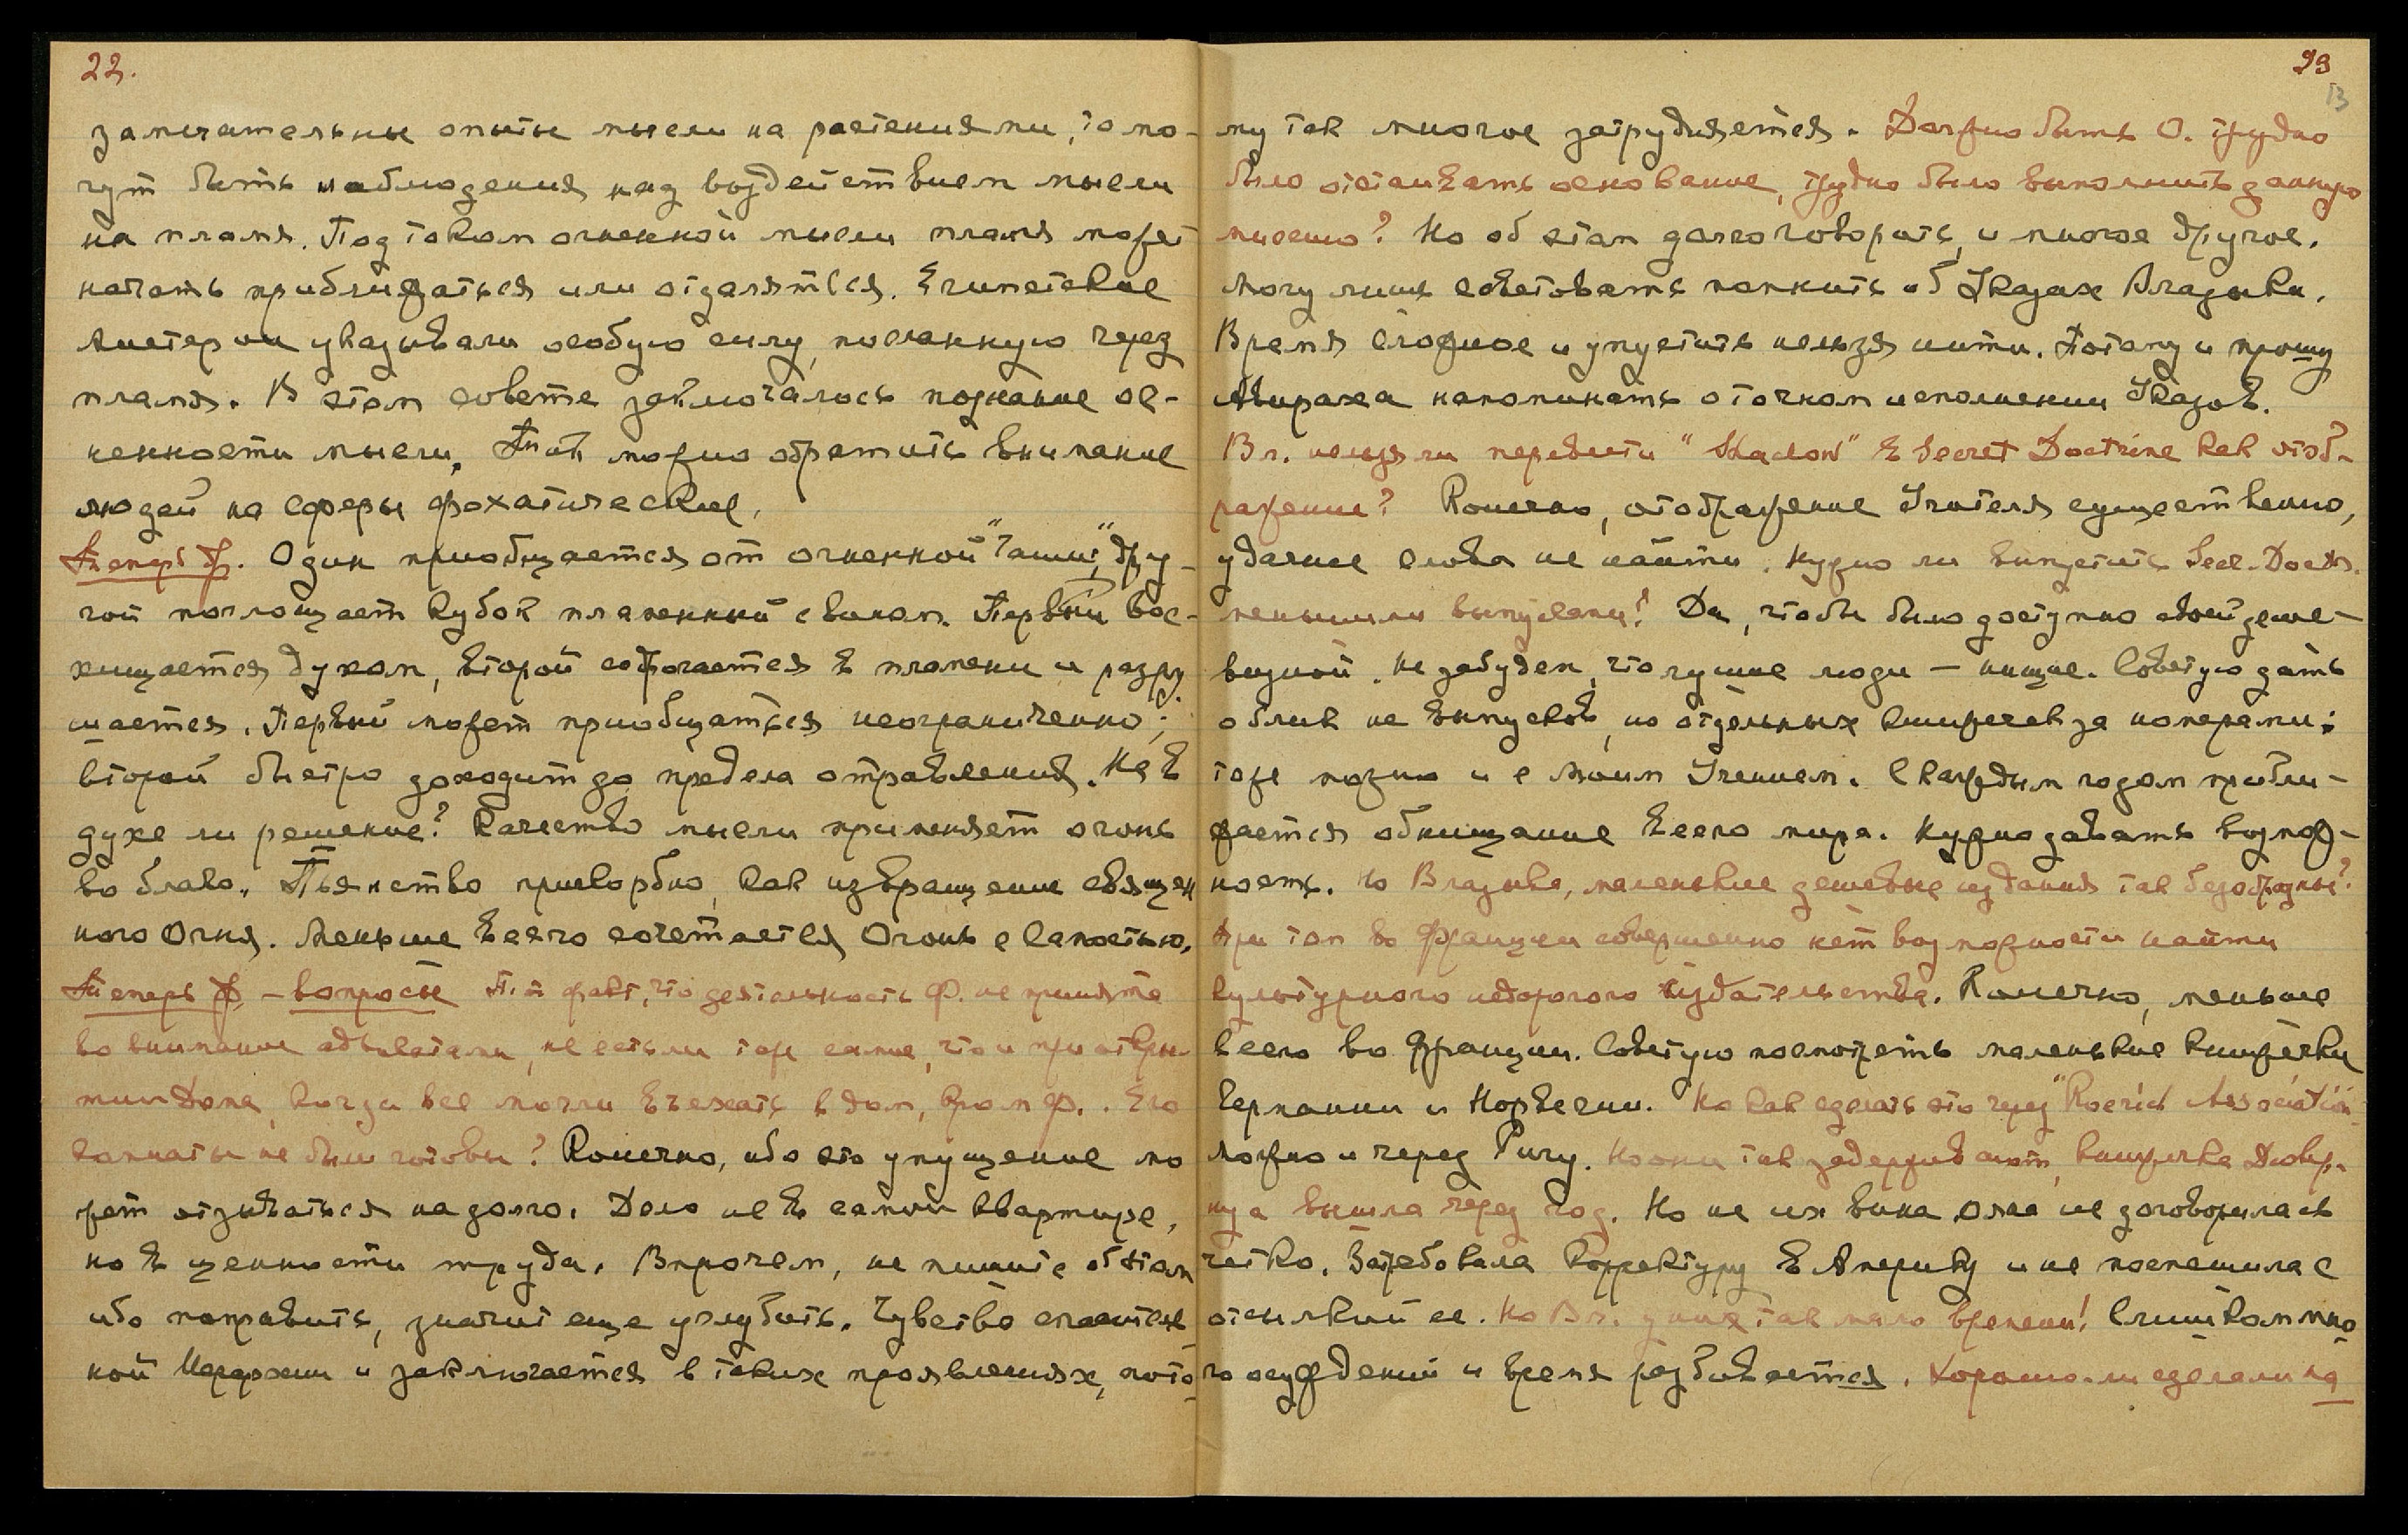 22.
замечательны опыты мысли на растениями, то мо-
гут быть наблюдения над воздействием мысли
на пламя. Под током огненной мысли пламя может
начать приближаться или отдаляться. Египетские
Мистерии указывали особую силу, посланную через
пламя. В этом совете заключалось познание ог-
ненности мысли. Так можно обратить внимание
людей на сферы фохатические.
Теперь Ф. Один приобщается от огненной "Чаши", дру-
гой поглощает кубок пламенный с вином. Первый вос-
хищается духом, второй сожигается в пламени и разру
шается. Первый может приобщаться неограниченно;
второй быстро доходит до предела отравления. Не в
духе ли решение? Качество мысли применяет огонь
во благо. Пьянство прискорбно, как извращение священ
ного Огня. Меньше всего сочетается Огонь с Самостью.
Теперь Ф. – вопросы факт, что деятельность Ф. не принята
во внимание адвокатами, не есть ли то же самое, что и при откры-
тии Дома, когда все могли въехать в дом, кроме Ф.. Его
комнаты не были готовы? Конечно, ибо это упущение мо
жет отзываться надолго. Дело не в самой квартире,
но в ценности труда. Впрочем, не пишите об этом
ибо поправить, значит еще углубить. Чувство спаситель
ной Иерархии и заключается в таких проявлениях, пото-
23
13
му так многое затрудняется. Должно быть О. трудно
было отстаивать основание, трудно было выполнить данную
миссию? Но об этом долго говорить, и многое другое.
Могу лишь советовать помнить об Указах Владыки.
Время сложное и упустить нельзя нити. Потому и прошу
Авираха напоминать о точном исполнении Указов.
Вл. нельзя ли перевести "Shadow" в Secret Doctrine как отоб-
ражение? Конечно, отображение Учителя существенно,
удачнее слова не найти. Нужно ли выпустить Secr. Doctr.
меньшими выпусками? Да, чтобы было доступно своей деше-
визной. Не забудем, что лучшие люди – нищие. Советую дать
облик не выпусков, но отдельных книжечек за номерами;
тоже можно и с Моим Учением. С каждым годом прибли-
жается обнищание всего мира. Нужно давать возмож-
ность. Но Владыка, маленькие дешевые издания так безобразны?
При том во Франции совершенно нет возможности найти
культурного недорогого издательства. Конечно, меньше
всего во Франции. Советую посмотреть маленькие книжечки
Германии и Норвегии. Но как сделать это через "Roerich Association
Можно и через Ригу. Но они так задерживают, книжечка Дювер-
нуа вышла через год. Но не их вина, она не договорилась
четко. Затребовала корректуру в Америку и не поспешила с
отсылкой ее. Но Вл. у них так мало времени! Слишком мно
го осуждений и время разбивается. Хорошо-ли сделали на